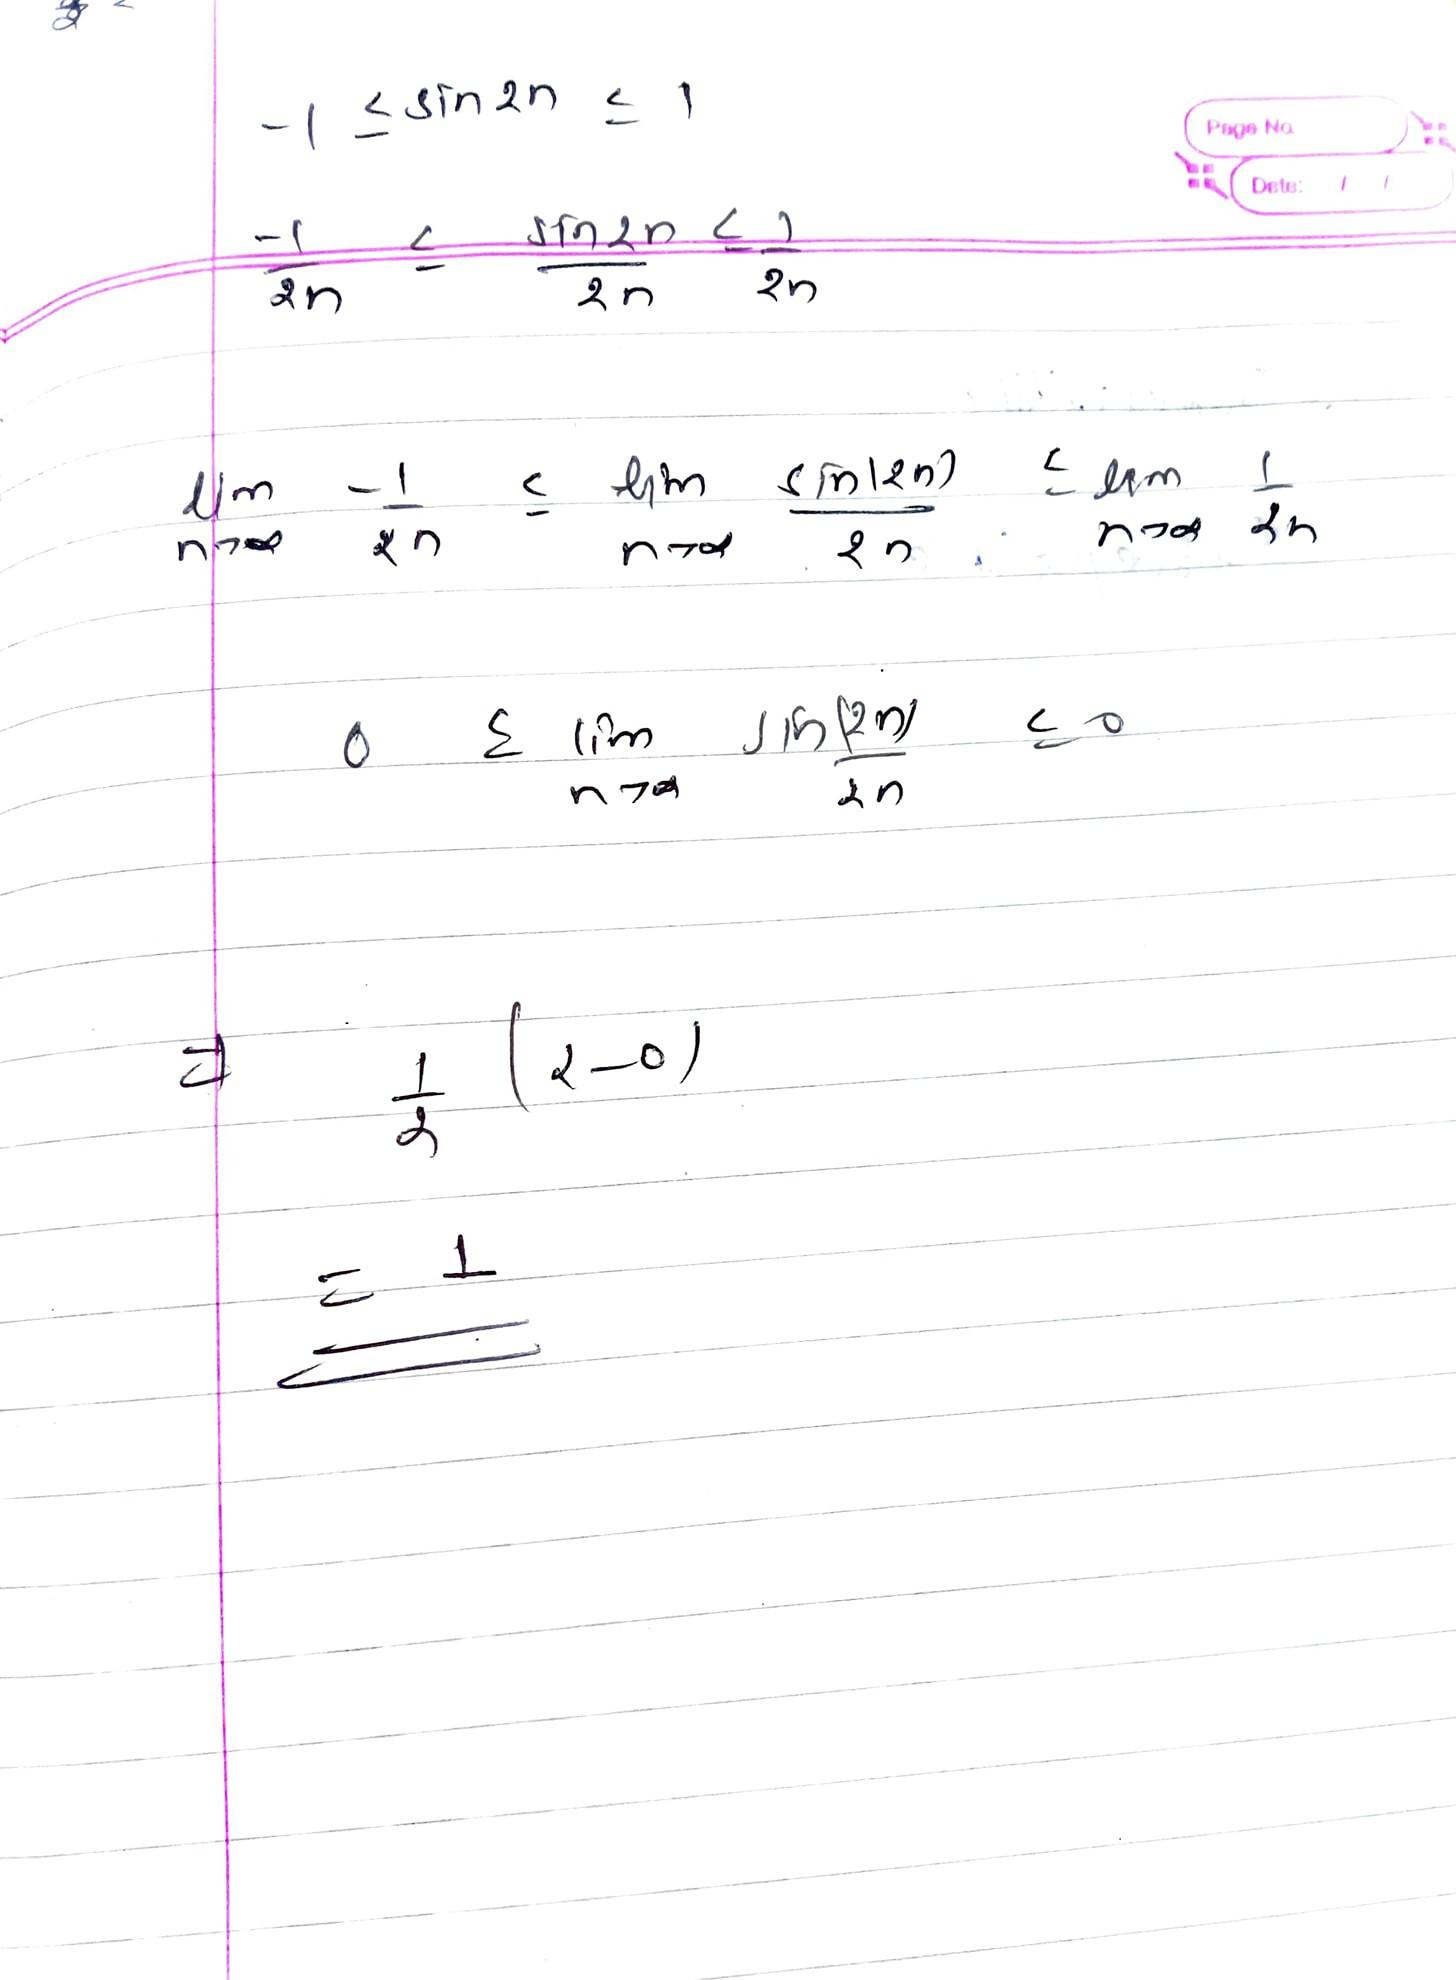 Page No
Date: / /
-1 ≤ sin2n ≤ 1
-1/2n ≤ sin2n/2n ≤ 1/2n
lim n→∞ -1/2n ≤ lim n→∞ sin(2n)/2n ≤ lim n→∞ 1/2n
0 ≤ lim n→∞ sin(2n)/2n ≤ 0
= 1/2 (2-0)
= 1